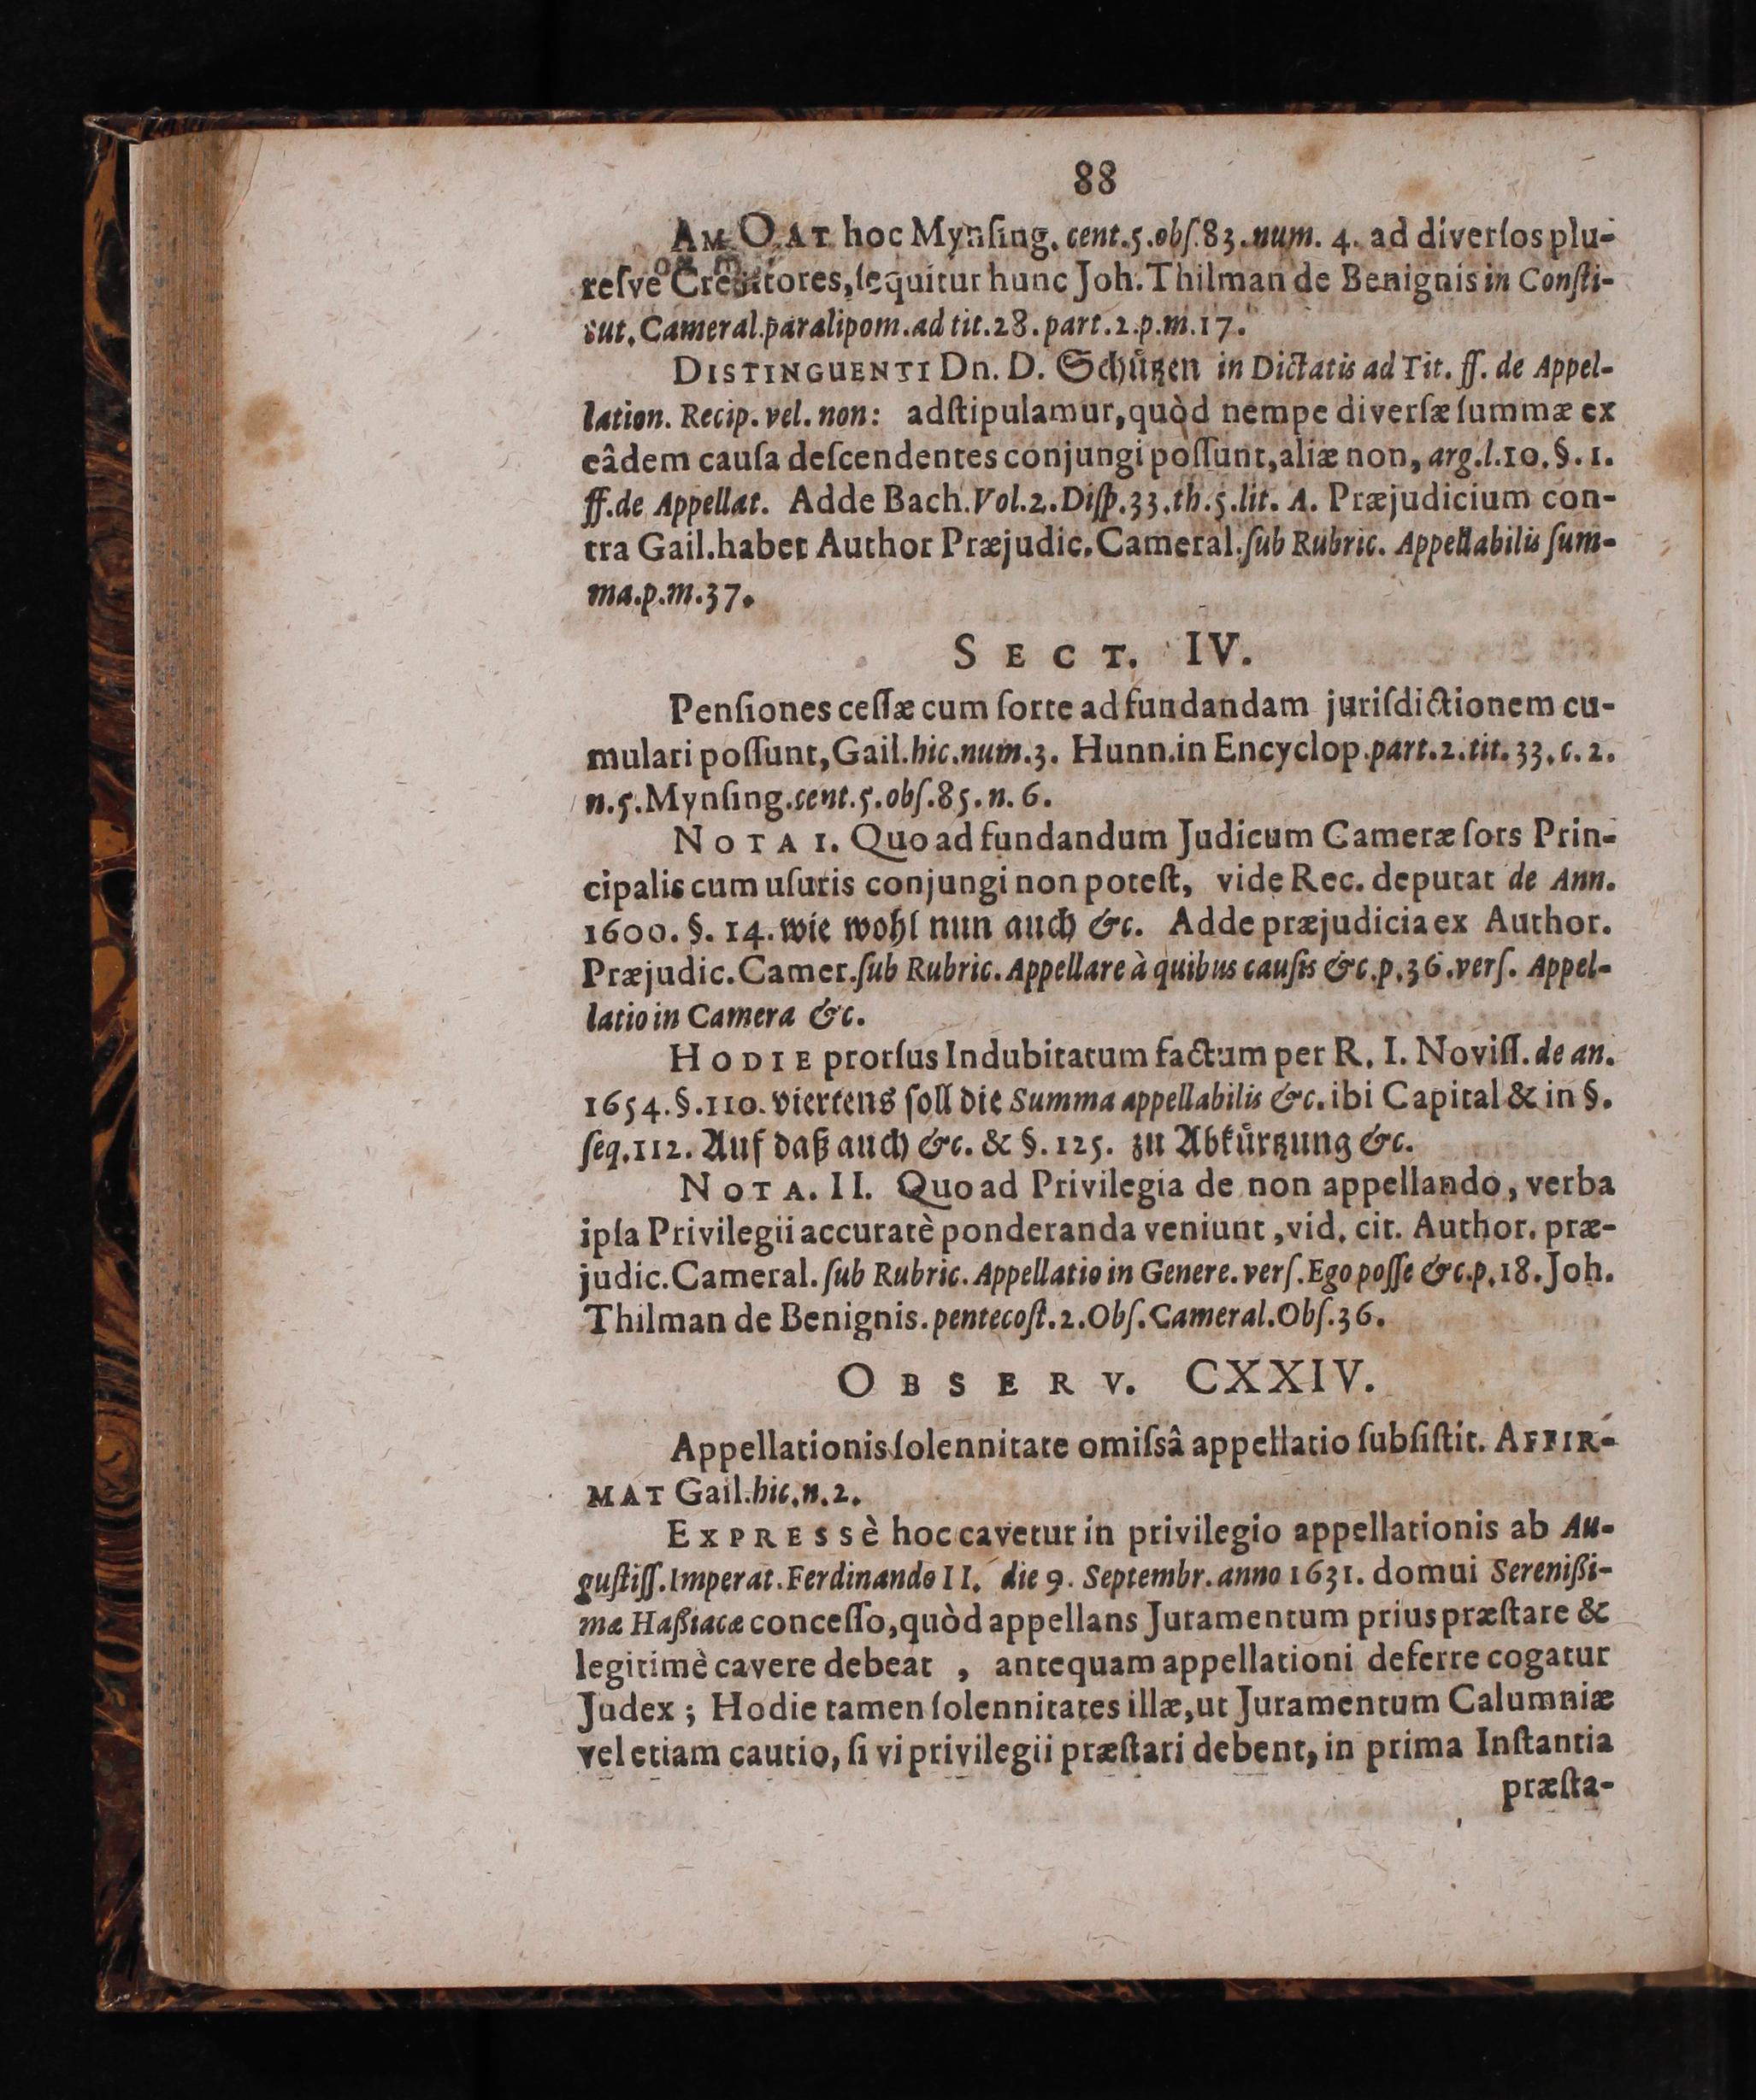 88
hoc Mynſing. cent.5.obſ.83.num. 4. ad diverſos plu-
reſve Creditores, ſequitur hunc Joh. Thilman de Benignis in Conſti-
tut. Cameral.paralipom.ad tit.28.part.2.p.m.17.
DISTINGUENTI Dn. D. Schützen in Dictatis ad Tit. ff. de Appel-
lation. Recip. vel. non: adſtipulamur, quòd nempe diverſæ ſummæ ex
eâdem cauſa deſcendentes conjungi poſſunt, aliæ non, arg.l.10.§.1.
ff.de Appellat. Adde Bach.Vol.2.Diſp.33.th.5.lit. A. Præjudicium con-
tra Gail.habet Author Præjudic.Cameral.ſub Rubric. Appellabilis ſum-
ma.p.m.37.
SECT. IV.
Penſiones ceſſæ cum ſorte ad fundandam juriſdictionem cu-
mulari poſſunt, Gail.hic.num.3. Hunn.in Encyclop.part.2.tit.33.c.2.
n.5.Mynſing.cent.5.obſ.85.n.6.
NOTA I. Quoad fundandum Judicum Cameræ ſors Prin-
cipalis cum uſuris conjungi non poteſt, vide Rec. deputat de Ann.
1600. §. 14. wie wohl nun auch &c. Adde præjudicia ex Author.
Præjudic.Camer.ſub Rubric. Appellare à quibus cauſis &c.p.36.verſ. Appel-
latio in Camera &c.
HODIE prorſus Indubitatum factum per R. I. Noviſſ. de an.
1654.§.110. viertens ſoll die Summa appellabilis &c. ibi Capital & in §.
ſeq.112. Auf daß auch &c. & §. 125. zu Abkürtzung &c.
NOTA. II. Quoad Privilegia de non appellando, verba
ipſa Privilegii accuratè ponderanda veniunt, vid. cit. Author. præ-
judic.Cameral. ſub Rubric. Appellatio in Genere. verſ. Ego poſſe &c.p.18. Joh.
Thilman de Benignis. pentecoſt.2.Obſ.Cameral.Obſ.36.
OBSERV. CXXIV.
Appellationis ſolennitate omiſsâ appellatio ſubſiſtit. AFFIR-
MAT Gail.hic.n.2.
EXPRESSè hoc cavetur in privilegio appellationis ab Au-
guſtiſſ.Imperat.Ferdinando II. die 9. Septembr. anno 1631. domui Sereniſsi-
mæ Haſsiacæ conceſſo, quòd appellans Juramentum prius præſtare &
legitimè cavere debeat , antequam appellationi deferre cogatur
Judex ; Hodie tamen ſolennitates illæ, ut Juramentum Calumniæ
vel etiam cautio, ſi vi privilegii præſtari debent, in prima Inſtantia
præſta-